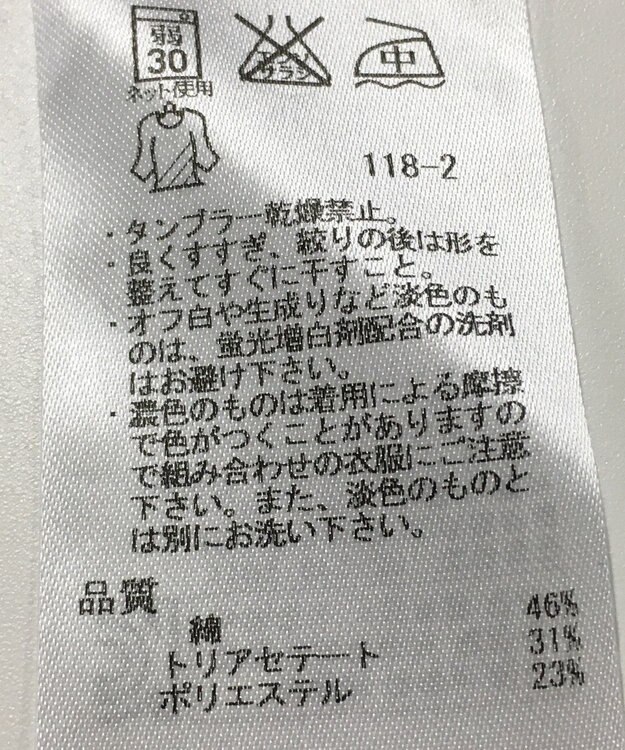 弱
30
ネット使用
エンソサラシ
中
118-2
・タンブラー乾燥禁止。
・良くすすぎ、絞りの後は形を
整えてすぐに干すこと。
・オフ白や生成りなど淡色のも
のは、蛍光増白剤配合の洗剤
はお避け下さい。
・濃色のものは着用による摩擦
で色がつくことがありますの
で組み合わせの衣服にご注意
下さい。また、淡色のものと
は別にお洗い下さい。
品質
綿 46%
トリアセテート 31%
ポリエステル 23%